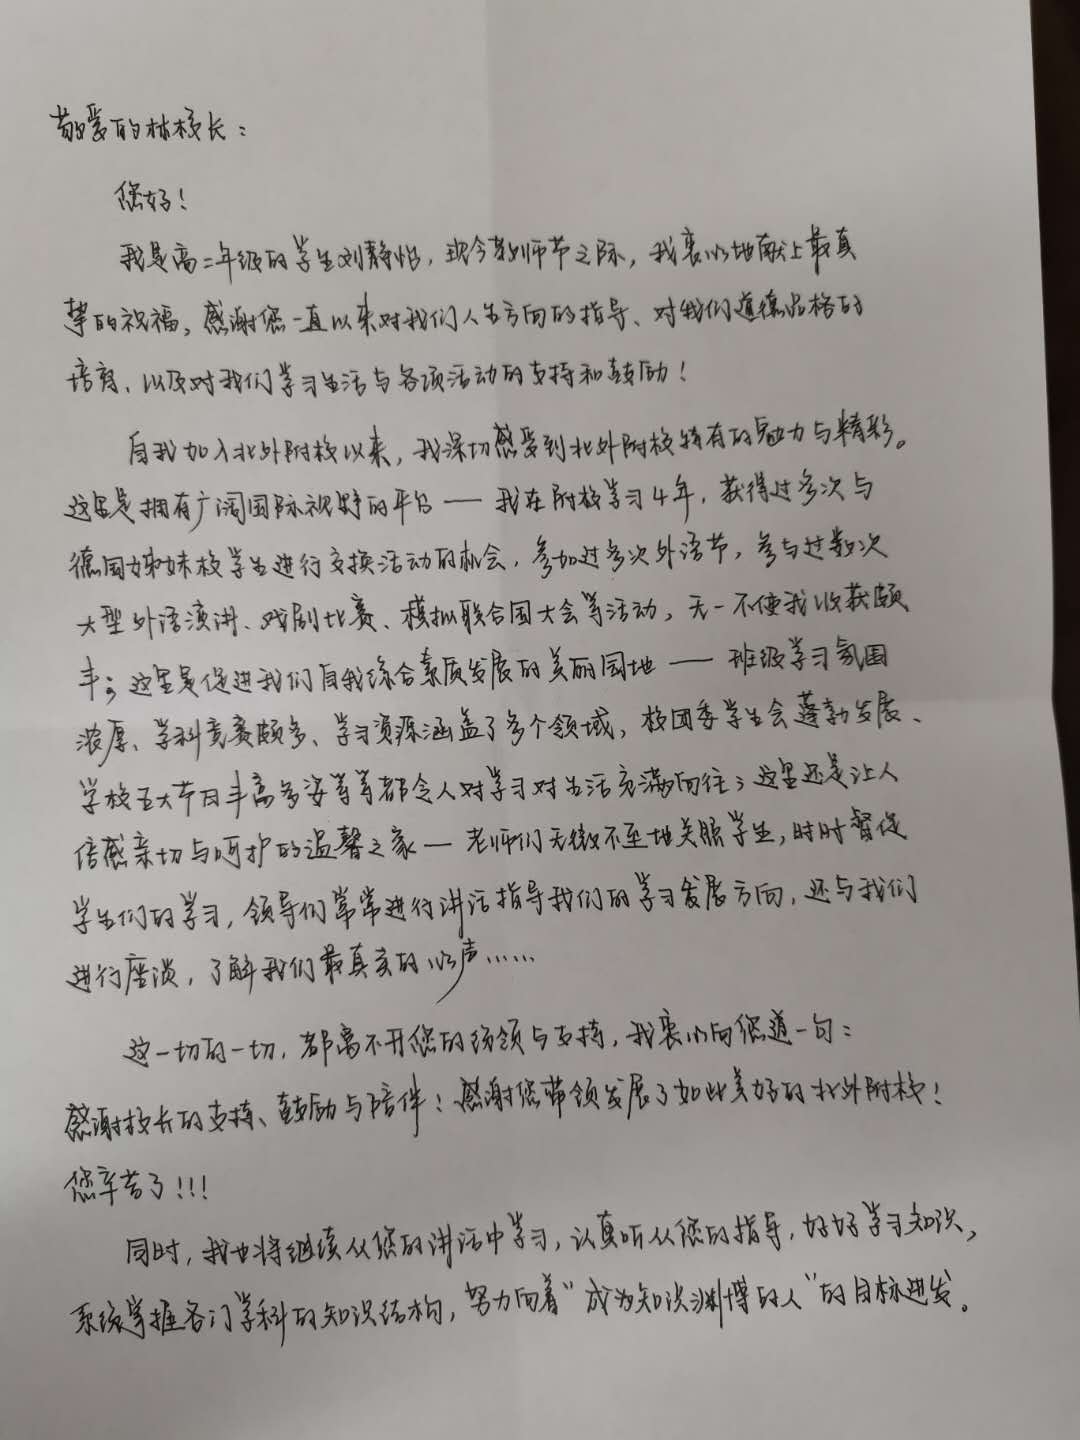 敬爱的林校长：
您好！
我是高二年级的学生刘静怡，现今教师节之际，我衷心地献上最真
挚的祝福，感谢您一直以来对我们人生方向的指导、对我们道德品格的
培育、以及对我们学习生活与各项活动的支持和鼓励！
自我加入北外附校以来，我深切感受到北外附校特有的魅力与精彩。
这里是拥有广阔国际视野的平台——我在附校学习4年，获得过多次与
德国姊妹校学生进行交换活动的机会，参加过多次外语节，参与过数次
大型外语演讲、戏剧比赛、模拟联合国大会等活动，无一不使我收获颇
丰；这里是促进我们自我综合素质发展的美丽园地——班级学习氛围
浓厚、学科竞赛颇多、学习资源涵盖了多个领域，校团委学生会蓬勃发展、
学校五大节日丰富多姿等等都令人对学习对生活充满向往；这里还是让人
倍感亲切与呵护的温馨之家—老师们无微不至地关照学生，时时督促
学生们的学习，领导们常常进行讲话指导我们的学习发展方向，还与我们
进行座谈，了解我们最真实的心声……
这一切的一切，都离不开您的统领与支持，我衷心向您道一句：
感谢校长的支持、鼓励与陪伴！感谢您带领发展了如此美好的北外附校！
您辛苦了！！！
同时，我也将继续从您的讲话中学习，认真听从您的指导，好好学习知识，
系统掌握各门学科的知识结构，努力向着“成为知识渊博的人”的目标进发。